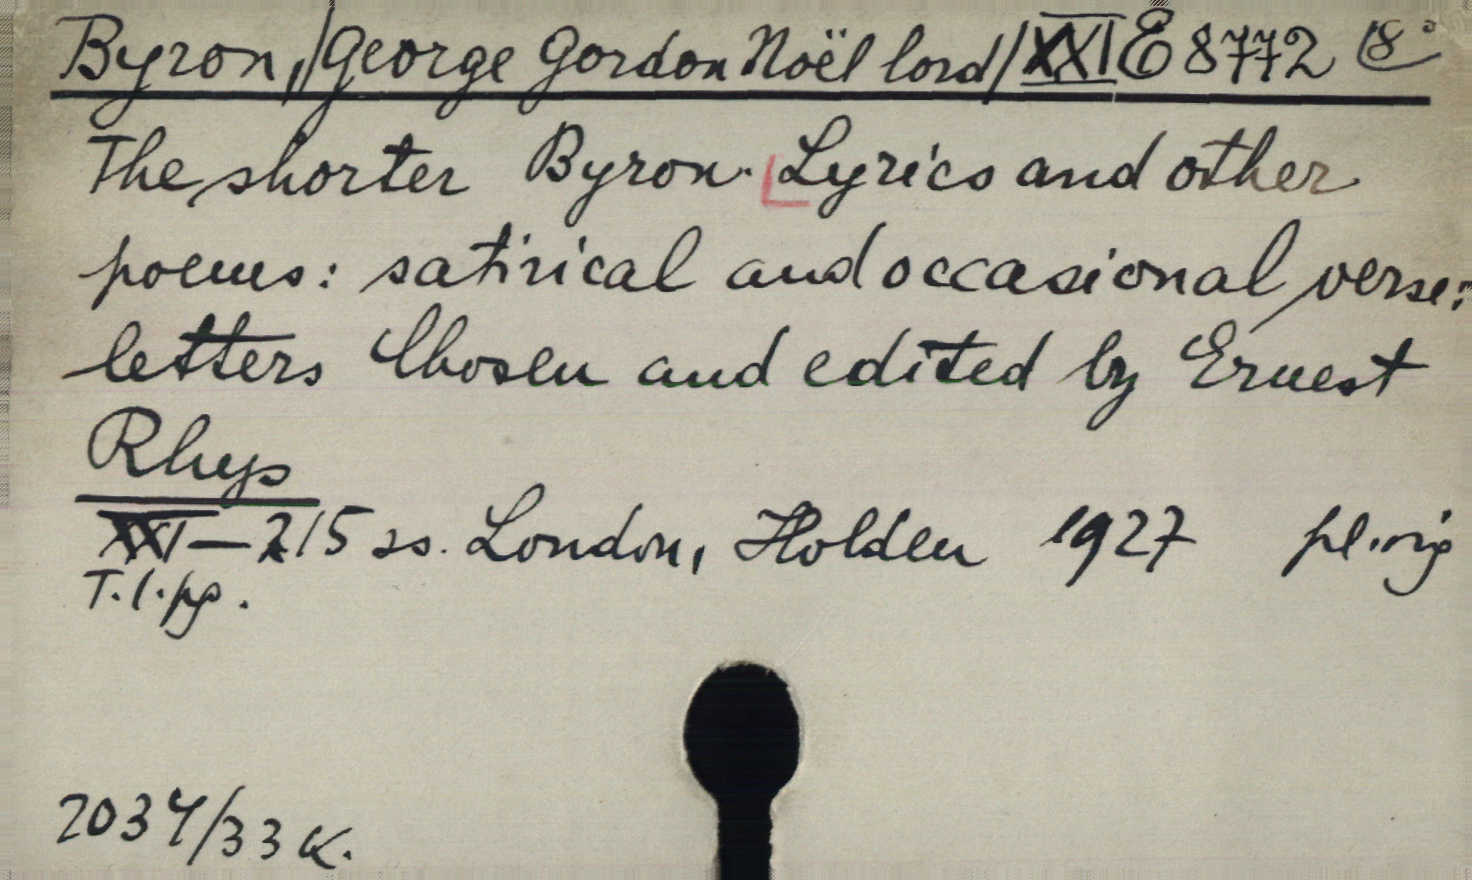 Byron, /George Gordon Noël lord/ XXI E 8772 8°
The shorter Byron. Lyrics and other
poems: satirical and occasional verse:
letters Chosen and edited by Ernest
Rhys
XXI-215 ss. London, Holden 1927
T.l.pp.
2034/33 K.